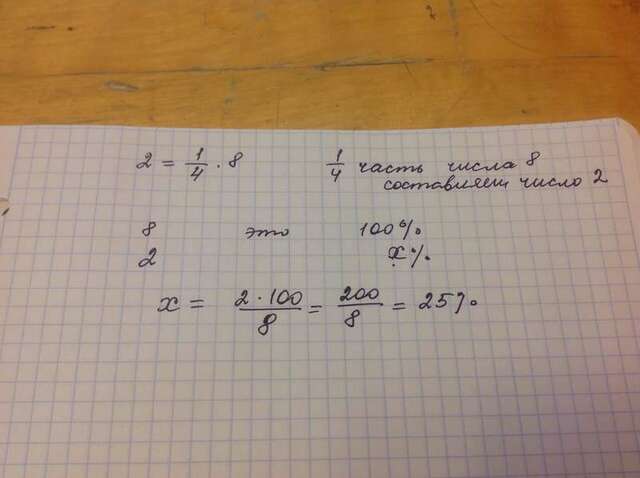 2 = 1/4 · 8    1/4 часть числа 8
составляет число 2
8 это 100%
2 x%
x = 2·100/8 = 200/8 = 25%